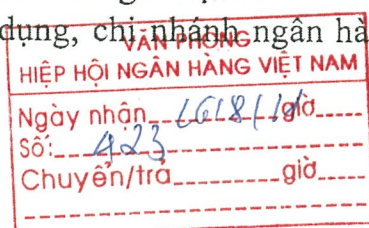 dụng, chi nhánh ngân hà
VĂN PHÒNG
HIỆP HỘI NGÂN HÀNG VIỆT NAM
Ngày nhận giờ
Số: 423
Chuyển/trả giờ